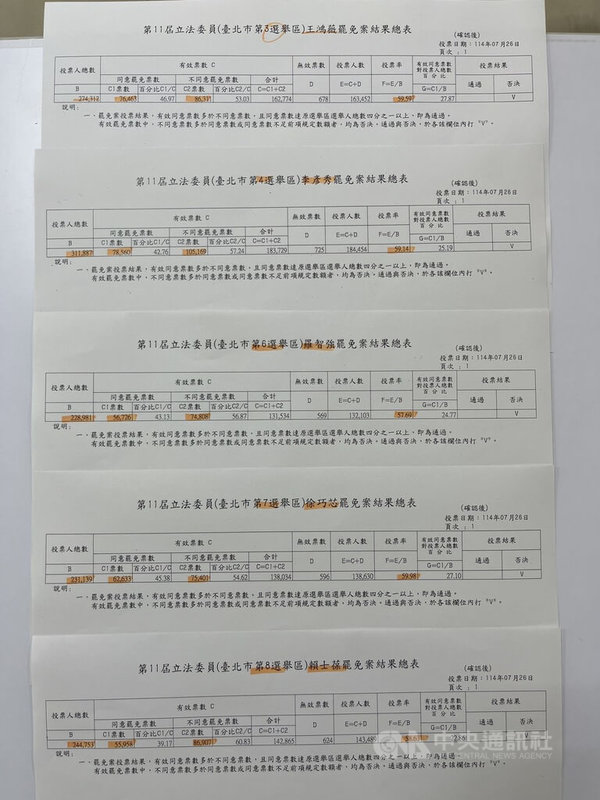 第11屆立法委員(臺北市第3選舉區)王鴻薇罷免案結果總表
(確認後)
投票日期：114年07月26日
頁次：1
投票人總數 有效票數 C 無效票數 投票人數 投票率 有效同意票數對投票人總數百分比 投票結果
同意罷免票數 不同意罷免票數 合計
B C1票數 百分比C1/C C2票數 百分比C2/C C=C1+C2 D E=C+D F=E/B G=C1/B 通過 否決
274,312 76,463 46.97 86,311 53.03 162,774 678 163,452 59.59 27.87 V
說明：
一、罷免案投票結果，有效同意票數多於不同意票數，且同意票數達原選舉區選舉人總數四分之一以上，即為通過。
有效罷免票數中，不同意票數多於同意票數或同意票數不足前項規定數額者，均為否決。通過與否決，於各該欄位內打 "V"。
第11屆立法委員(臺北市第4選舉區)李彥秀罷免案結果總表
(確認後)
投票日期：114年07月26日
頁次：1
投票人總數 有效票數 C 無效票數 投票人數 投票率 有效同意票數對投票人總數百分比 投票結果
同意罷免票數 不同意罷免票數 合計
B C1票數 百分比C1/C C2票數 百分比C2/C C=C1+C2 D E=C+D F=E/B G=C1/B 通過 否決
311,887 78,560 42.76 105,169 57.24 183,729 725 184,454 59.14 25.19 V
說明：
一、罷免案投票結果，有效同意票數多於不同意票數，且同意票數達原選舉區選舉人總數四分之一以上，即為通過。
有效罷免票數中，不同意票數多於同意票數或同意票數不足前項規定數額者，均為否決。通過與否決，於各該欄位內打 "V"。
第11屆立法委員(臺北市第6選舉區)羅智強罷免案結果總表
(確認後)
投票日期：114年07月26日
頁次：1
投票人總數 有效票數 C 無效票數 投票人數 投票率 有效同意票數對投票人總數百分比 投票結果
同意罷免票數 不同意罷免票數 合計
B C1票數 百分比C1/C C2票數 百分比C2/C C=C1+C2 D E=C+D F=E/B G=C1/B 通過 否決
228,981 56,726 43.13 74,808 56.87 131,534 569 132,103 57.69 24.77 V
說明：
一、罷免案投票結果，有效同意票數多於不同意票數，且同意票數達原選舉區選舉人總數四分之一以上，即為通過。
有效罷免票數中，不同意票數多於同意票數或同意票數不足前項規定數額者，均為否決。通過與否決，於各該欄位內打 "V"。
第11屆立法委員(臺北市第7選舉區)徐巧芯罷免案結果總表
(確認後)
投票日期：114年07月26日
頁次：1
投票人總數 有效票數 C 無效票數 投票人數 投票率 有效同意票數對投票人總數百分比 投票結果
同意罷免票數 不同意罷免票數 合計
B C1票數 百分比C1/C C2票數 百分比C2/C C=C1+C2 D E=C+D F=E/B G=C1/B 通過 否決
231,139 62,633 45.38 75,401 54.62 138,034 596 138,630 59.98 27.10 V
說明：
一、罷免案投票結果，有效同意票數多於不同意票數，且同意票數達原選舉區選舉人總數四分之一以上，即為通過。
有效罷免票數中，不同意票數多於同意票數或同意票數不足前項規定數額者，均為否決。通過與否決，於各該欄位內打 "V"。
第11屆立法委員(臺北市第8選舉區)賴士葆罷免案結果總表
(確認後)
投票日期：114年07月26日
頁次：1
投票人總數 有效票數 C 無效票數 投票人數 投票率 有效同意票數對投票人總數百分比 投票結果
同意罷免票數 不同意罷免票數 合計
B C1票數 百分比C1/C C2票數 百分比C2/C C=C1+C2 D E=C+D F=E/B G=C1/B 通過 否決
244,753 55,958 39.17 86,907 60.83 142,865 624 143,489 V
說明：
一、罷免案投票結果，有效同意票數多於不同意票數，且同意票數達原選舉區選舉人總數四分之一以上，即為通過。
有效罷免票數中，不同意票數多於同意票數或同意票數不足前項規定數額者，均為否決。通過與否決，於各該欄位內打 "V"。
中央通訊社
CENTRAL NEWS AGENCY